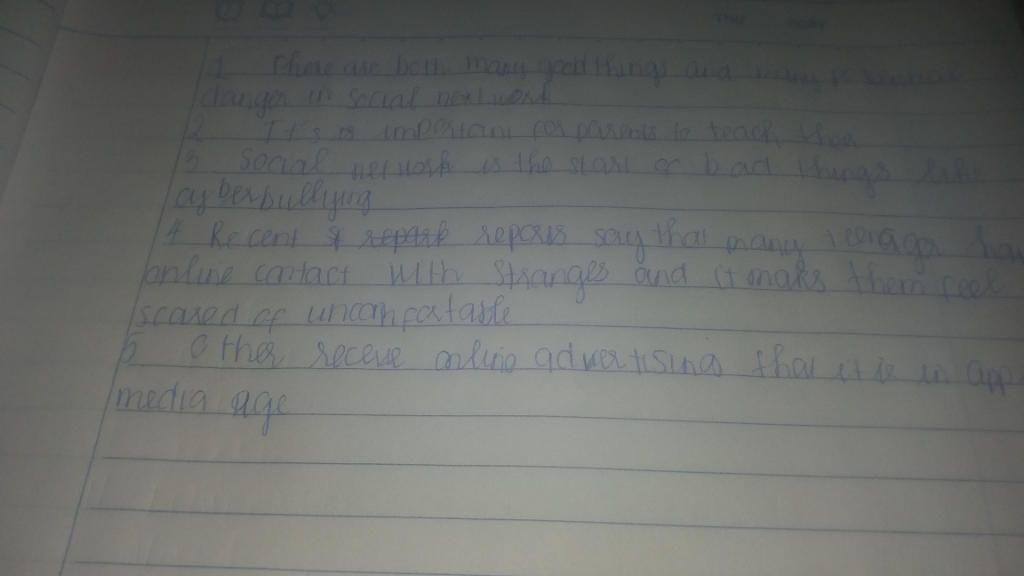 1 There are both many good things and many
danger in social network
2 It's important for parents to teach
3 Social network is the start of bad things like
cyberbullying
4 Recent reports say that many teenager
online contact with stranges and it maks them feel
scared of uncomfortable
5 Other receive online advertising that it is in
media age